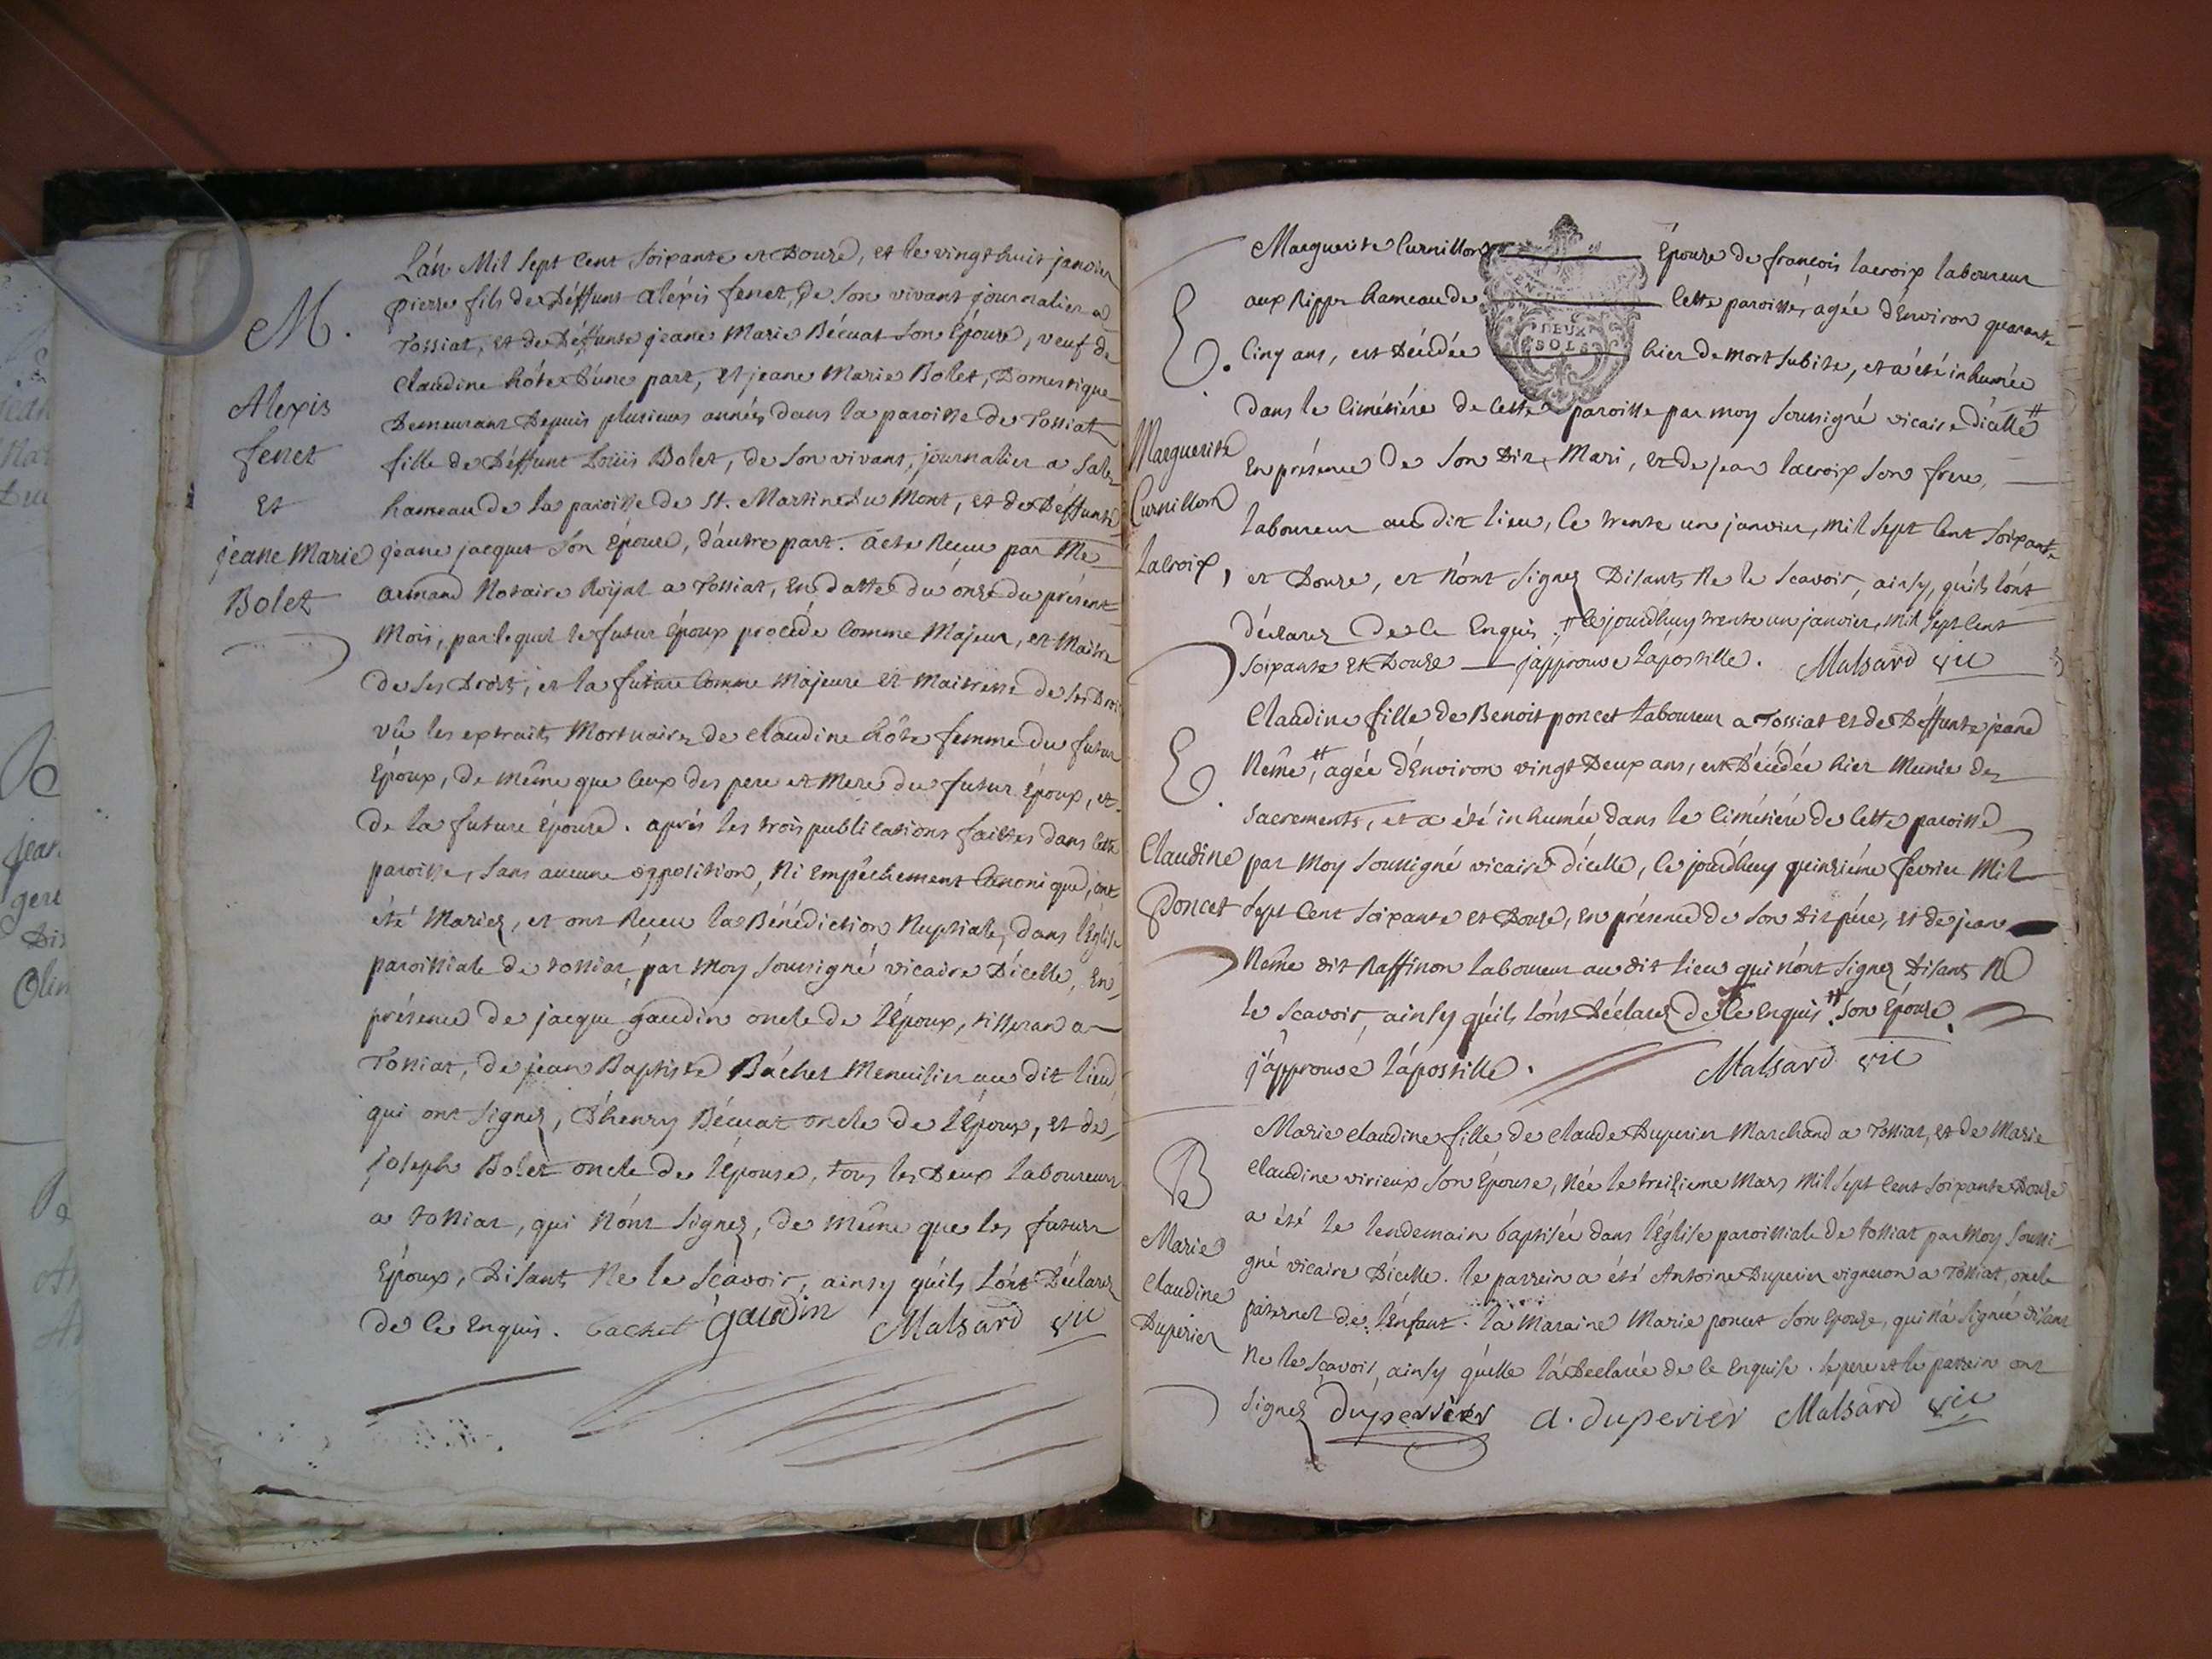 L'án Mil Sept Cent Soixante et Douze, et le vingt huit janvier
pierre fils de Déffunt aléxis fenet, de Son vivant journalier a
Tossiat, et de Déffunte jeane Marie Bécuat Son Épouse, veuf de
Claudine hôte D'une part, Et jeane Marie Bolet, Domestique
Demeurant Depuis plusieurs années dans la paroisse de Tossiat
fille de Déffunt Loüis Bolet, de Son vivant, journalier a
hameau de la paroisse de St. Martin du Mont, et de Déffunte
jeane jacquet Son Épouse, d'áutre part. acte Reçeu par Me
armand Notaire Roÿal a Tossiat, En datte du ónze du présent
Mois, par lequel le futur Époux procéde Comme Majeur, et Maitre
de Ses Droits, et la future Comme Majeure et Maitresse de Ses Droits
vû les extraits Mortuaires de Claudine hôte femme du futur
Époux, de même que Ceux des pere et Mere du futur Époux, et
de la future Épouse. aprés les trois publications faittes dans Cette
paroisse, Sans aucune opposition, Ni Empêchement Canonique, ont
été Mariez, et ont Reçeu la Bénédiction Nuptiale, dans l'Église
paroissiale de tossiat, par Moy Soussigné vicaire D'icelle, En
présence de jacque gaudin oncle de l'Époux, tisseran a
Tossiat, de jean Baptiste Báchet Menuisier au dit lieu
qui ont Signez, D'henry Bécuat oncle de l'Époux, et de
joseph Bolet oncle de l'épouse, tous les Deux laboureurs
a tossiat, qui N'ónt Signez, de même que les futurs
Époux, Disants Ne le Scavoir, ainsy qu'ils l'ónt Déclarez
de Ce Enquis. Bachet gaudin Malsard vic
M.
Alexis
fenet
Et
jeane Marie
Bolet
Marguerite Curnillon Épouse de françois lacroix laboureur
aux Rippes hameau de Cette paroisse, agée d'Environ quarante
Cinq ans, est Décédée hier de mort Subite, et a été inhumée
dans le Cimétiére de Cette paroisse par moy Soussigné vicaire d'icelle #
En présence de Son Dit Mari, et de jean lacroix Son frere,
laboureur au dit lieu, le trente un janvier, Mil Sept Cent Soixante
et Douze, et N'ónt Signez Disants Ne le Scavoir, ainsy, qu'ils l'ónt
déclarez De Ce Enquis. # Ce jourd'huy trente un janvier, Mil Sept Cent
Soixante et Douze — j'approuve l'apostille. Malsard vic
E.
Marguerite
Curnillon
lacroix,
Claudine fille de Benoit poncet laboureur a Tossiat et de Deffunte jeane
Neme #, agée d'Environ vingt Deux ans, est Décédée hier Munie des
Sacrements, et a été inhumée dans le Cimétiére de Cette paroisse
par Moy Soussigné vicaire d'icelle, Ce jourd'huy quinziéme fevrier Mil
Sept Cent Soixante et Douze, en présence de Son Dit pére, et de jean
Neme dit Raffinon laboureur au dit lieu qui n'ónt Signez Disants Ne
le Scavoir, ainsy qu'ils l'ónt Déclarez de Ce Enquis. # Son Épouse
j'approuve l'ápostille. Malsard vic
E.
Claudine
Poncet
Marie Claudine fille de Claude Duperier Marchand a Tossiat, et de Marie
Claudine virieux Son Épouse, Née le treiziéme Mars Mil Sept Cent Soixante Douze
a été le lendemain baptisée dans l'Église paroissiale de tossiat par Moy Soussi-
gné vicaire D'icelle. le parrein a été Antoine Duperier vigneron a Tossiat, oncle
paternel de l'énfant. la Maraine Marie poncet Son Épouse, qui N'á Signée disant
Ne le Sçavoir, ainsy qu'elle l'á Declarée de Ce Enquise. le pere et le parrein ont
Signez duperier a. duperier Malsard vic
B
Marie
Claudine
Duperier
DEUX
SOLS